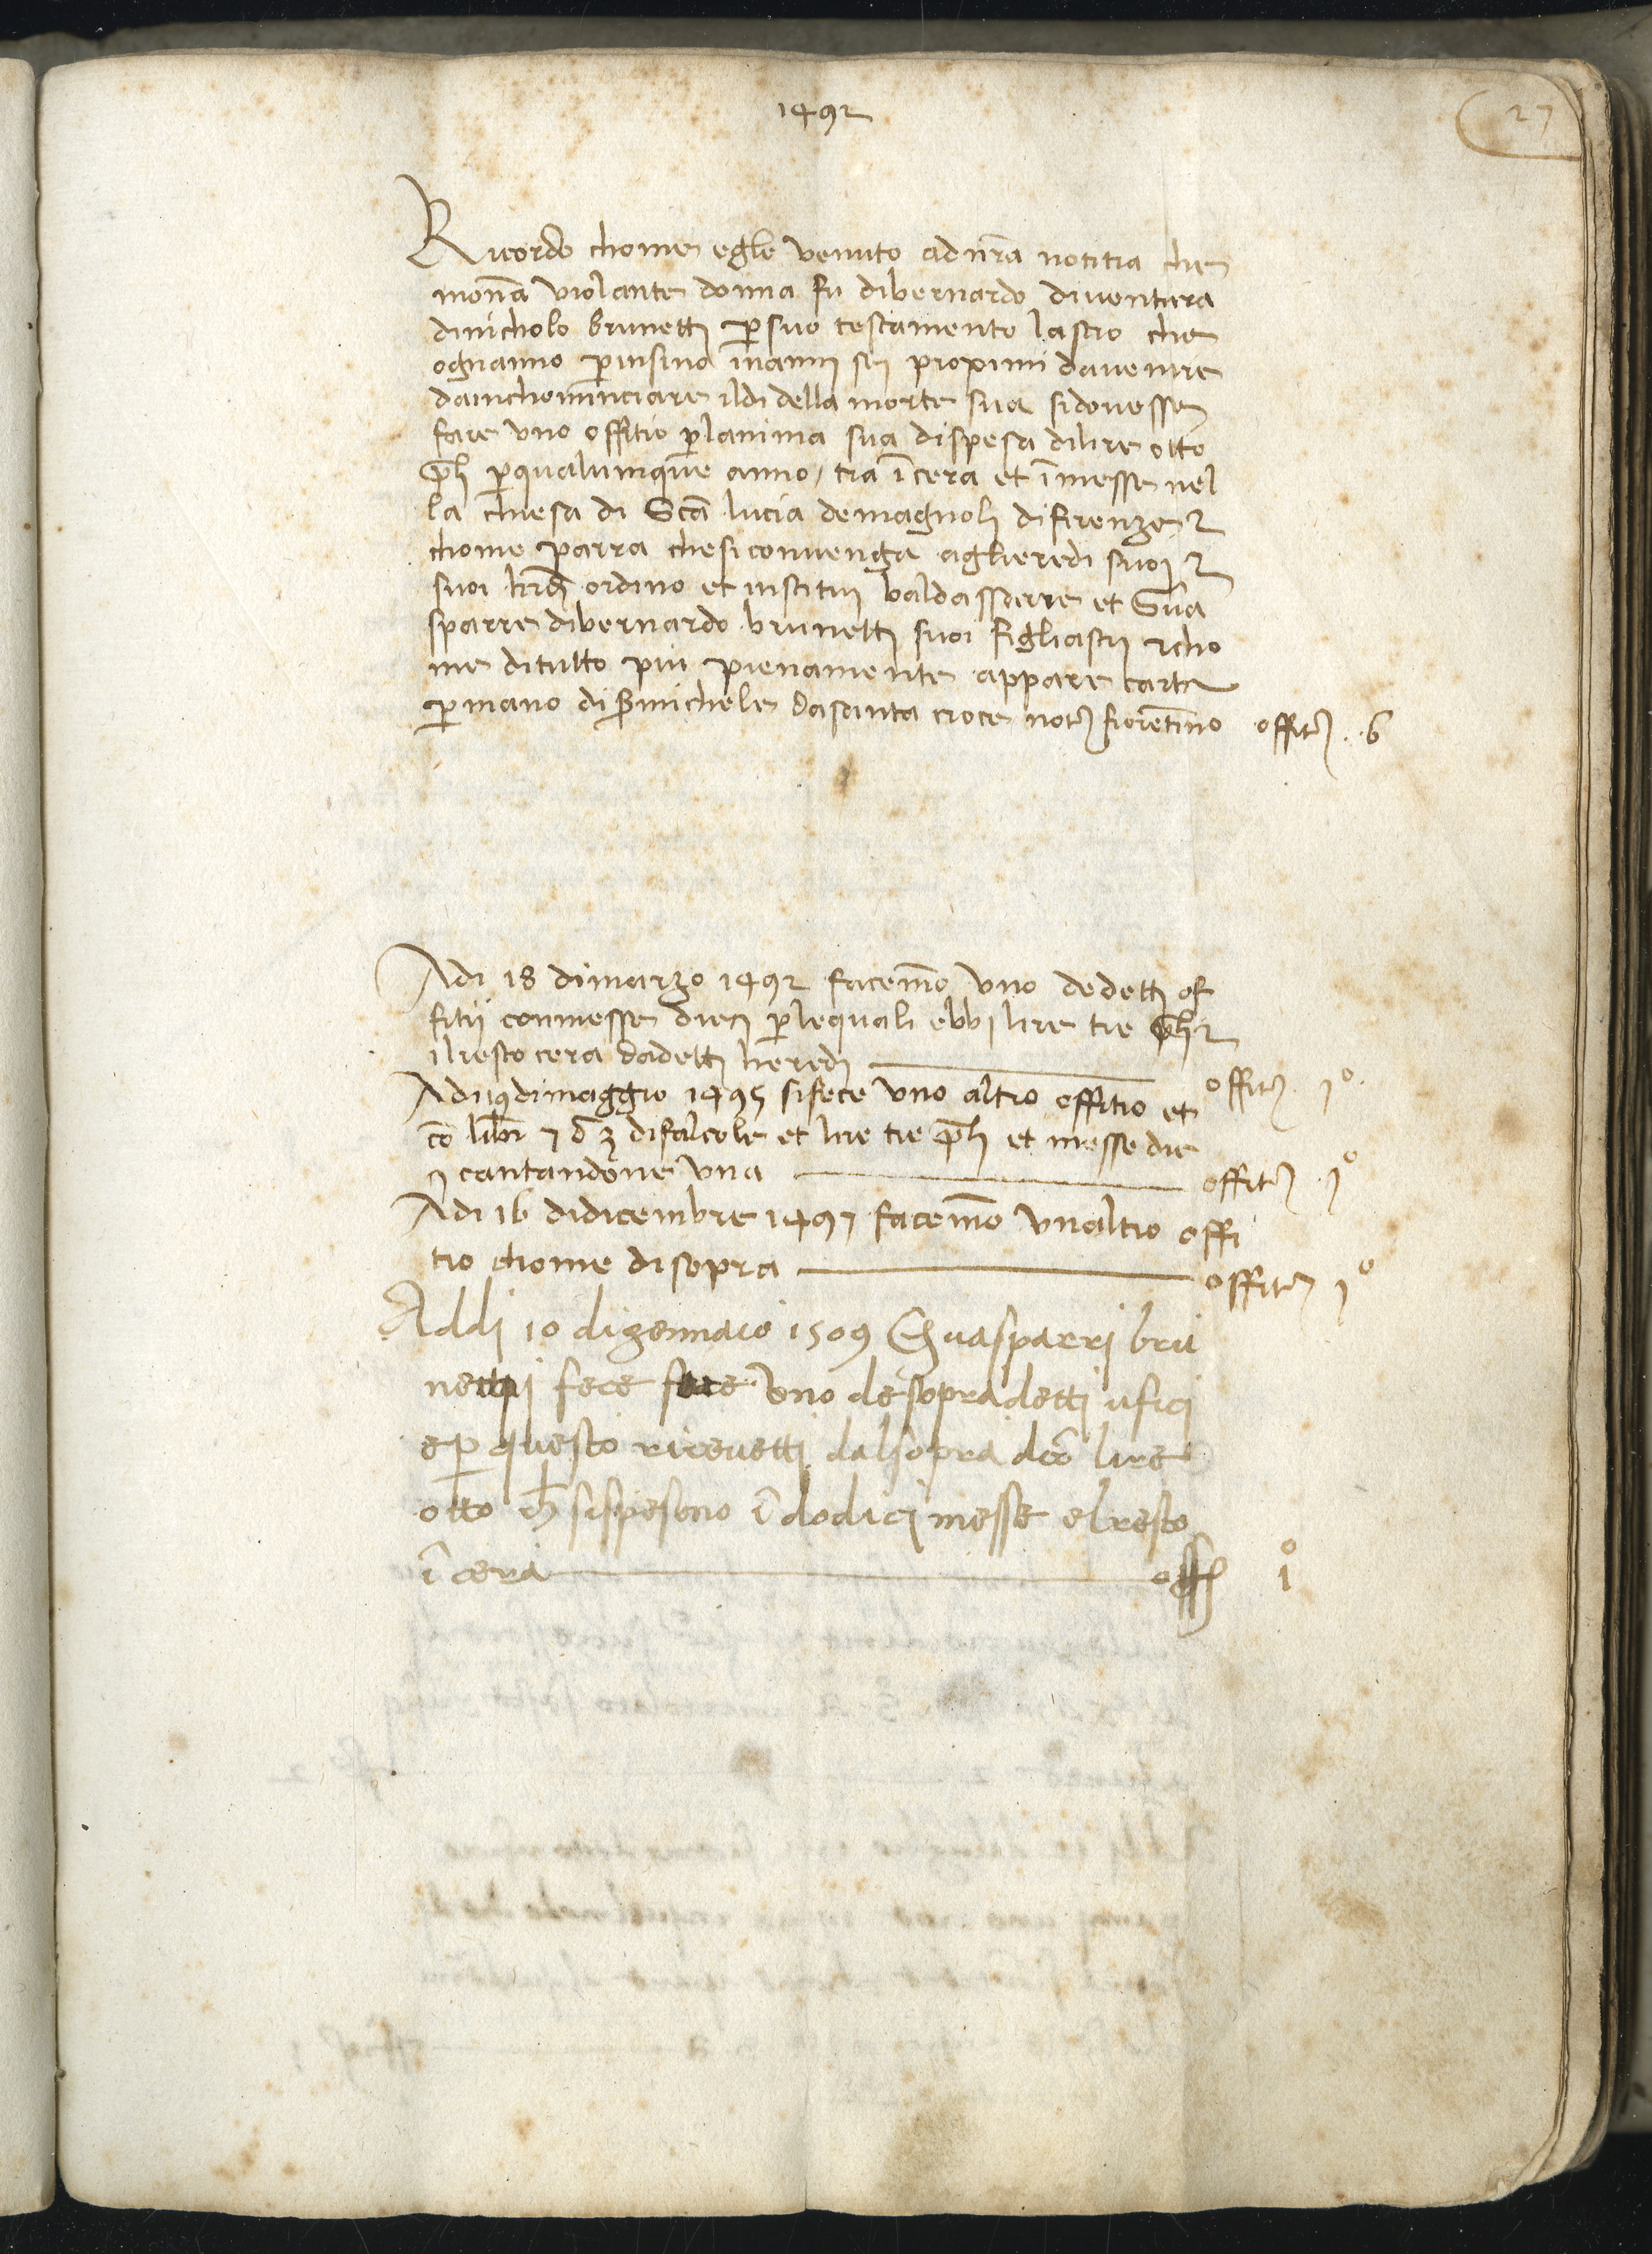 1492
27
Ricordo chome egle venuto ad nr̄a notitia che
monā violante donna fu dibernardo diventura
dinicholo brunettj ꝑsuo testamento lascio che
ognanno ꝑinsino īnannj sej proximi davenire
dainchominciare ildi della morte sua sidovesse
fare uno offitio ꝑlanima sua dispesa dilire otto
ꝑqualunque anno / tra ī cera et ī messe nel
la chiesa di Scā lucia demagnolj difirenze
chome parra chesiconvenga aglieredi suoj
suoi ordino et instituj baldassarre et Gua
sparre dibernardo brunettj suoi figliastrj cho
me ditutto piu pienamente appare carta
ꝑmano di S michele dasanta croce notͦ fiorentīno offitj . 6
Adi 18 dimarzo 1492 facemō uno dedettj of
fitij conmesse diecj ꝑlequali ebbj lire tre
ilresto cera dadettj heredj offitj 1º
Adi 19 dimaggio 1495 sifece uno altro offitio et
cō libr 7 difalcole et lire tre et messe die
cj cantandone una offitj 1º
Adi 16 didicembre 1497 facemō unaltro offi
tio chome disopra offitj 1º
Addi 10 digennaio 1509 Guasparrj bru
nettj fece fare uno desopradettj ufici
e ꝑ questo ricevettj dalsopra dcō lire
otto sispesono ī dodicj messe elresto
ī cera offj 1º